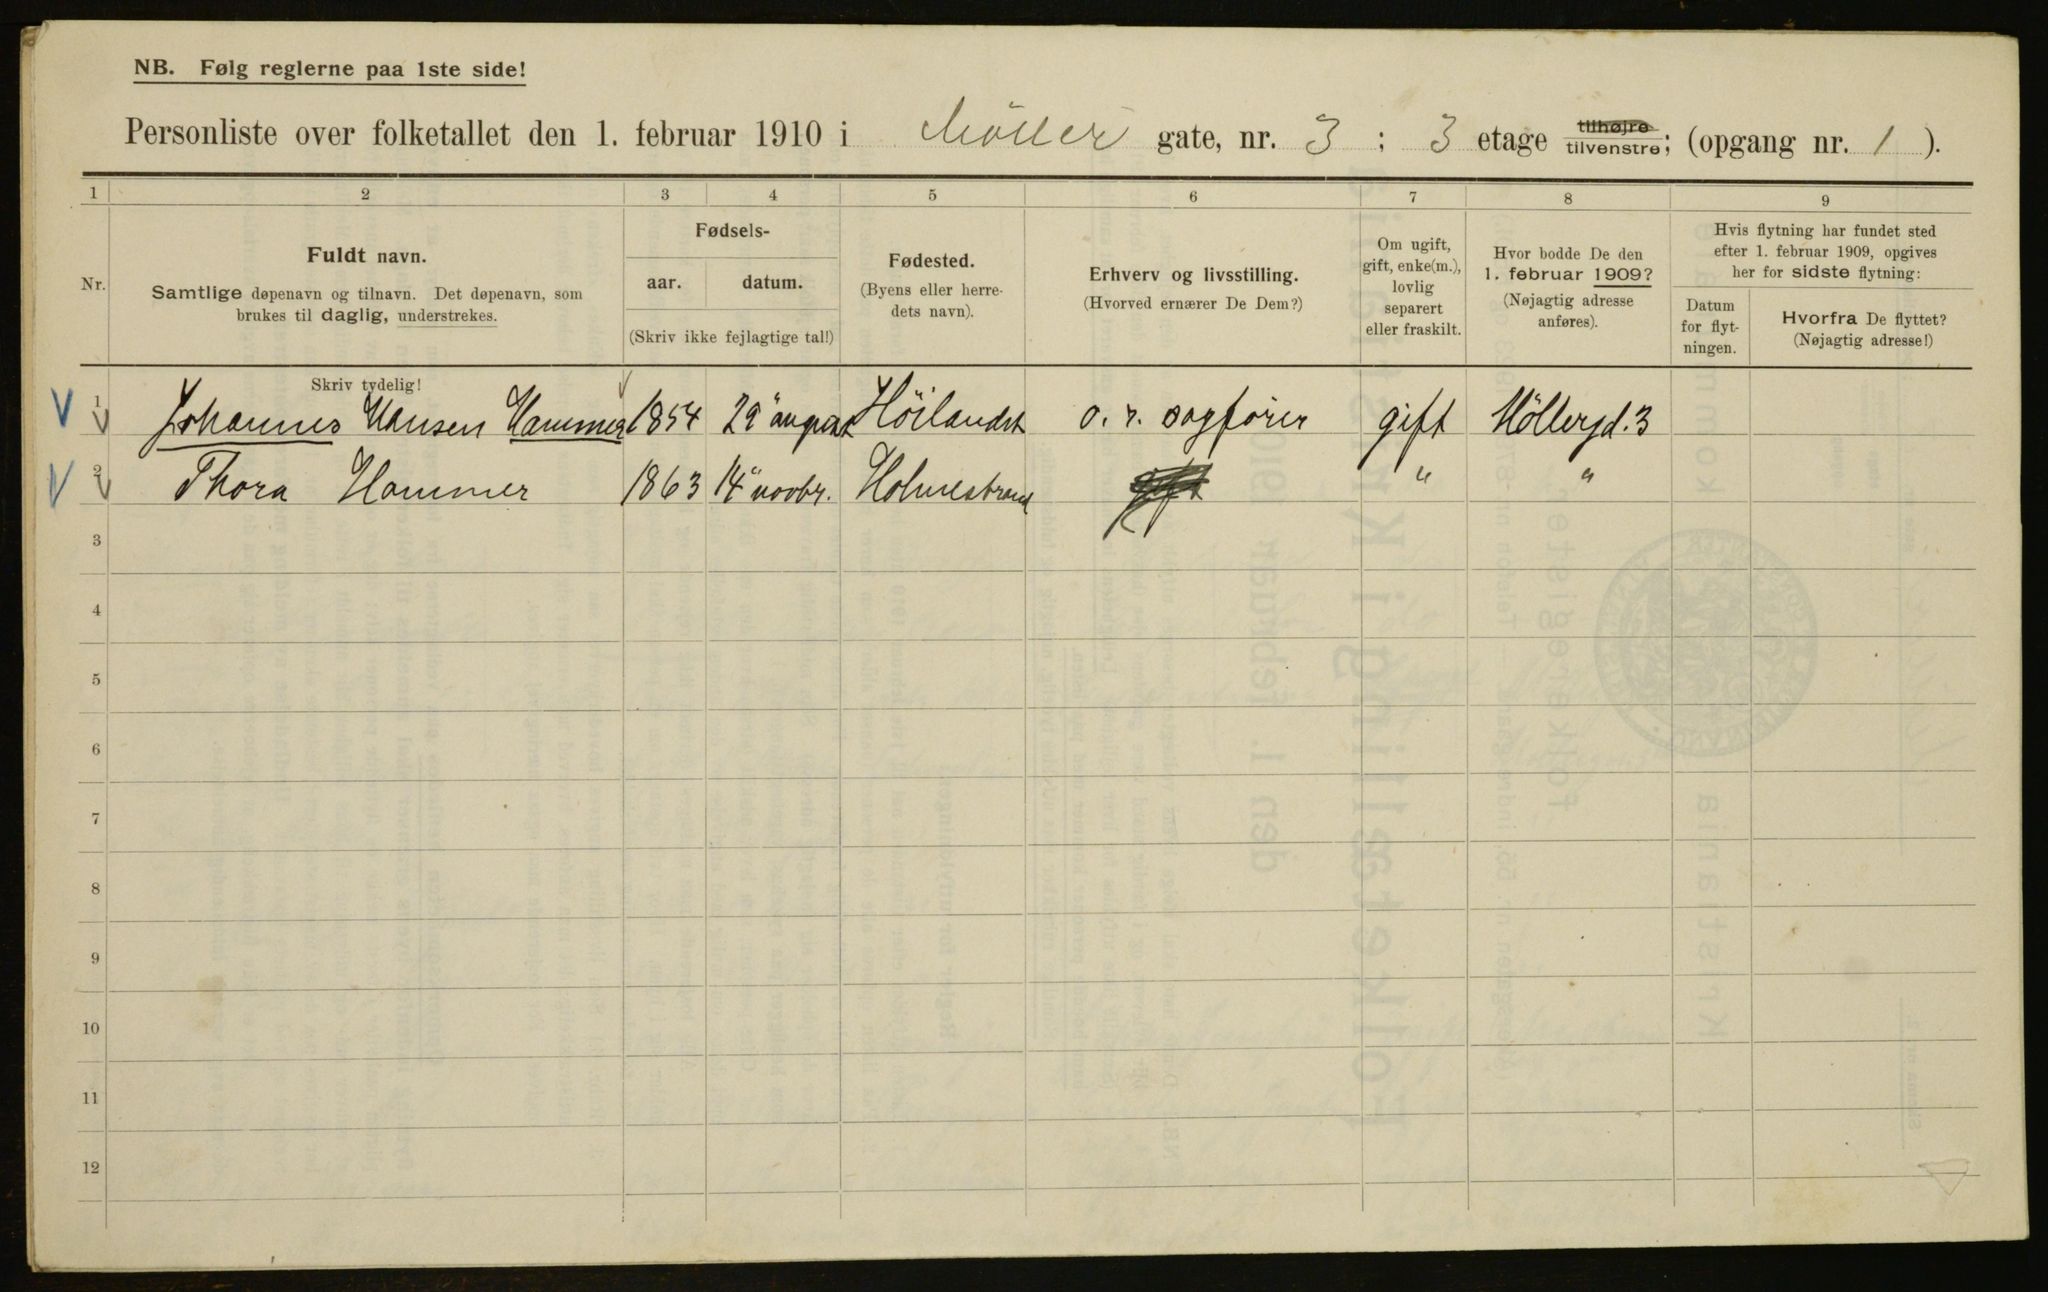 NB. Følg reglerne paa 1ste side!
Personliste over folketallet den 1. februar 1910 i Møller gate, nr. 3 ; 3 etage tilhøjre tilvenstre; (opgang nr. 1 ).
1 2 3 4 5 6 7 8 9
Nr.
Fuldt navn.
Samtlige døpenavn og tilnavn. Det døpenavn, som
brukes til daglig, understrekes.
Fødsels-
aar. datum.
(Skriv ikke fejlagtige tal!)
Fødested.
(Byens eller herre-
dets navn).
Erhverv og livsstilling.
(Hvorved ernærer De Dem?)
Om ugift,
gift, enke(m.),
lovlig
separert
eller fraskilt.
Hvor bodde De den
1. februar 1909?
(Nøjagtig adresse
anføres).
Hvis flytning har fundet sted
efter 1. februar 1909, opgives
her for sidste flytning:
Datum
for flyt-
ningen.
Hvorfra De flyttet?
(Nøjagtig adresse!)
Skriv tydelig!
1 Johannes Hansen Hammer 1854 29 august Höilandet o. r. sagfører gift Möllergd. 3
2 Thora Hammer 1863 14 novbr. Holmestrand " "
3
4
5
6
7
8
9
10
11
12